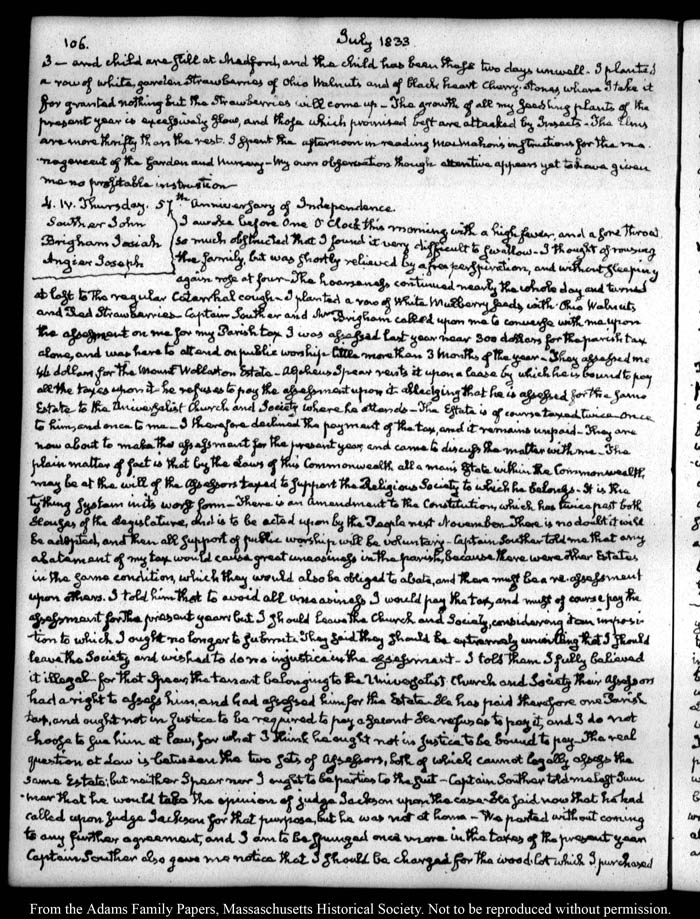 106. July 1833
3 — and child are still at Medford, and the child has been these two days unwell — I planted
a row of white, garden Strawberries of Ohio Walnuts and of black heart Cherry-stones, where I take it
for granted nothing but the Strawberries will come up — The growth of all my seedling plants of the
present year is excessively slow, and those which promised best are attacked by Insects — The Elms
are more thrifty than the rest. I spent the afternoon in reading MacMahon's instructions for the ma-
nagement of the Garden and Nursery — My own observation though attentive appears yet to have given
me no profitable instruction
4. IV. Thursday. 57th anniversary of Independence.
Souther John
Brigham Josiah
Angier Joseph
I awoke before One O'Clock this morning with a high fever, and a sore throat
so much obstructed that I found it very difficult to swallow — I thought of rousing
the family, but was shortly relieved by a free perspiration, and without sleeping
again rose at four — The hoarseness continued nearly the whole day and turned
at last to the regular Catarrhal cough — I planted a row of White Mulberry seeds, with Ohio Walnuts
and Red Strawberries — Captain Souther and Mr Brigham called upon me to converse with me upon
the assessment on me for my Parish tax I was assessed last year near 300 dollars for the parish tax
alone, and was here to attend on public worship little more than 3 Months of the year — They assessed me
46 dollars for the Mount Wollaston Estate — Alpheus Spear rents it upon a lease by which he is bound to pay
all the taxes upon it he refuses to pay the assessment upon it alledging that he is assessed for the same
Estate to the Universalist Church and Society where he attends — The Estate is of course taxed twice — once
to him, and once to me — I therefore declined the payment of the tax, and it remains unpaid — They are
now about to make the assessment for the present year, and came to discuss the matter with me — The
plain matter of fact is that by the Laws of this Commonwealth all a man's Estate within the Commonwealth,
may be at the will of the Assessors taxed to support the Religious Society to which he belongs — It is the
tything system in its worst form — There is an Amendment to the Constitution, which has twice past both
Houses of the Legislature, and is to be acted upon by the People next November. There is no doubt it will
be adopted, and then all support of public worship will be voluntary — Captain Souther told me that any
abatement of my tax would cause great uneasiness in the parish, because there were other Estates
in the same condition, which they would also be obliged to abate, and there must be a re-assessment
upon others. I told him that to avoid all uneasiness I would pay the tax, and must of course pay the
assessment for the present year; but I should leave the Church and Society, considering it an imposi-
tion to which I ought no longer to submit. They said they should be extremely unwilling that I should
leave the Society and wished to do no injustice in the assessment — I told them I fully believed
it illegal — for that Spear, the tenant belonging to the Universalist Church and Society their Assessors
had a right to assess him, and had assessed him for the Estate. He has paid therefore one Parish
tax, and ought not in Justice to be required to pay a second. He refuses to pay it, and I do not
choose to sue him at Law, for what I think he ought not in Justice to be bound to pay. The real
question at Law is between the two sets of Assessors, both of which cannot legally assess the
same Estate; but neither Spear nor I ought to be parties to the suit — Captain Souther told me last Sum-
mer that he would take the opinion of Judge Jackson upon the case. He said now that he had
called upon Judge Jackson for that purpose, but he was not at home — We parted without coming
to any further agreement, and I am to be spunged once more in the taxes of the present year
Captain Souther also gave me notice that I should be charged for the wood-lot which I purchased
From the Adams Family Papers, Massachusetts Historical Society. Not to be reproduced without permission.